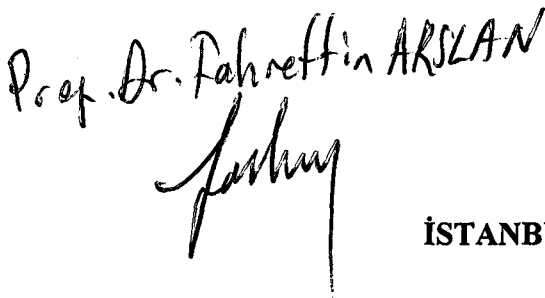 Prof. Dr. Fahrettin ARSLAN
İSTANB